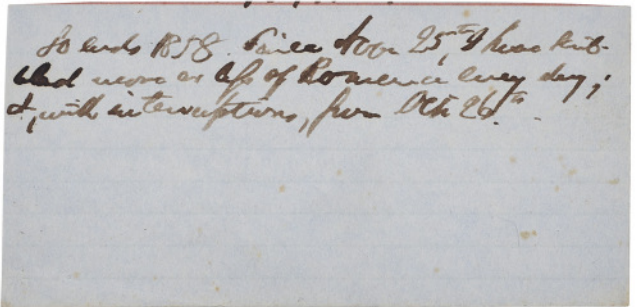 So ends 1858. Since Nov 25th, I have scrib-
bled more or less of Romance every day;
&, with interruptions, from Oct 26th.